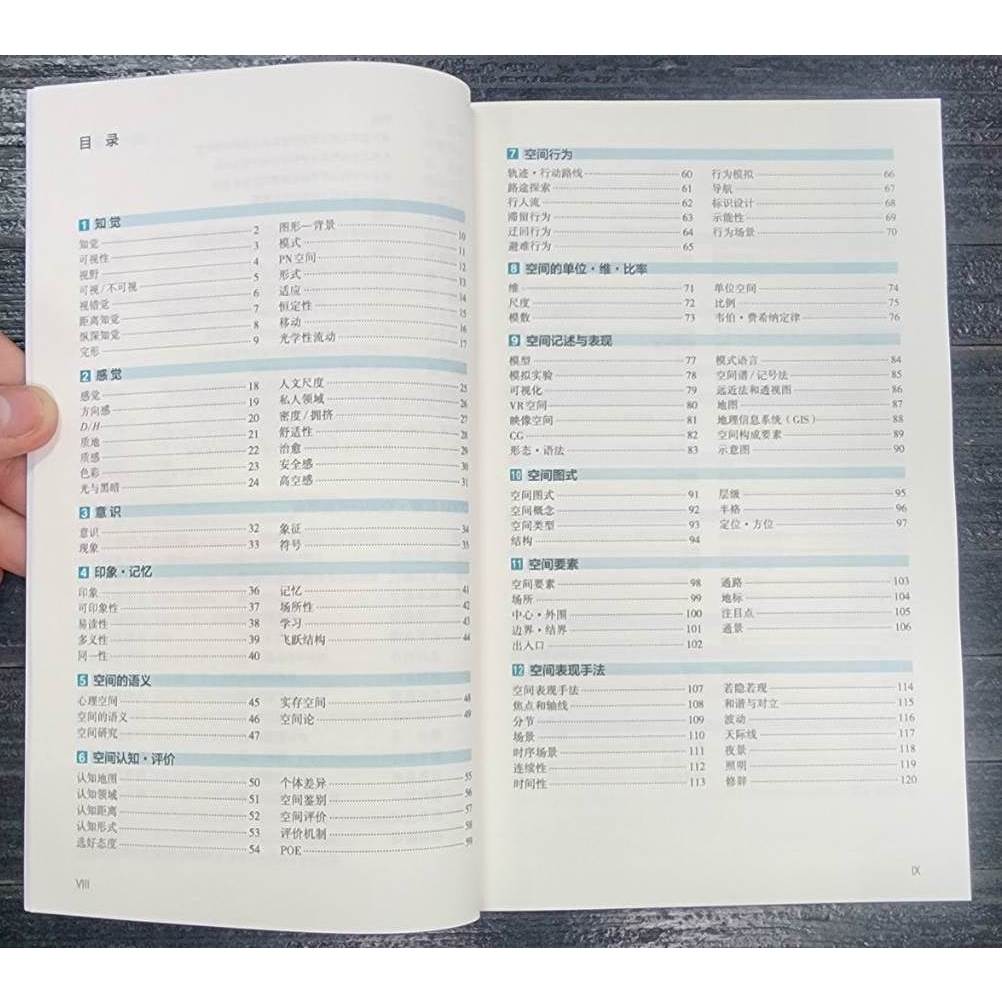 目 录
1 知觉
知觉 2
可视性 3
视野 4
可视/不可视 5
视错觉 6
距离知觉 7
纵深知觉 8
完形 9
图形—背景 10
模式 11
PN空间 12
形式 13
适应 14
恒定性 15
移动 16
光学性流动 17
2 感觉
感觉 18
方向感 19
D/H 20
质地 21
质感 22
色彩 23
光与黑暗 24
人文尺度 25
私人领域 26
密度/拥挤 27
舒适性 28
治愈 29
安全感 30
高空感 31
3 意识
意识 32
现象 33
象征 34
符号 35
4 印象·记忆
印象 36
可印象性 37
易读性 38
多义性 39
同一性 40
记忆 41
场所性 42
学习 43
飞跃结构 44
5 空间的语义
心理空间 45
空间的语义 46
空间研究 47
实存空间 48
空间论 49
6 空间认知·评价
认知地图 50
认知领域 51
认知距离 52
认知形式 53
选好态度 54
个体差异 55
空间鉴别 56
空间评价 57
评价机制 58
POE 59
VIII
7 空间行为
轨迹·行动路线 60
路途探索 61
行人流 62
滞留行为 63
迂回行为 64
避难行为 65
行为模拟 66
导航 67
标识设计 68
示能性 69
行为场景 70
8 空间的单位·维·比率
维 71
尺度 72
模数 73
单位空间 74
比例 75
韦伯·费希纳定律 76
9 空间记述与表现
模型 77
模拟实验 78
可视化 79
VR空间 80
映像空间 81
CG 82
形态·语法 83
模式语言 84
空间谱/记号法 85
远近法和透视图 86
地图 87
地理信息系统（GIS） 88
空间构成要素 89
示意图 90
10 空间图式
空间图式 91
空间概念 92
空间类型 93
结构 94
层级 95
半格 96
定位·方位 97
11 空间要素
空间要素 98
场所 99
中心·外围 100
边界·结界 101
出入口 102
通路 103
地标 104
注目点 105
通景 106
12 空间表现手法
空间表现手法 107
焦点和轴线 108
分节 109
场景 110
时序场景 111
连续性 112
时间性 113
若隐若现 114
和谐与对立 115
波动 116
天际线 117
夜景 118
照明 119
修辞 120
IX